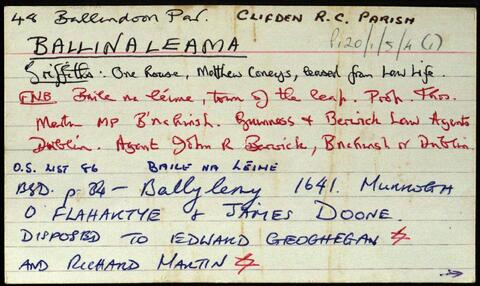 48 Ballindoon Par. CLIFDEN R.C. PARISH
P120/1/5/4(1)
BALLINALEAMA
Griffiths: One house, Matthew Coneys, leased from Law Life.
FNB Baile na léime, town of the leap. Prop. Thos.
Martin MP B'nchinish. & Berwick Law Agents
Dublin. Agent John R Berwick, Bnchinsh or Dublin.
O.S. LIST 86 BAILE NA LÉIME
BSD. p. - Ballylemy 1641. MURROGH
O FLAHARTYE & JAMES DOONE.
DISPOSED TO EDWARD GEOGHEGAN
AND RICHARD MARTIN